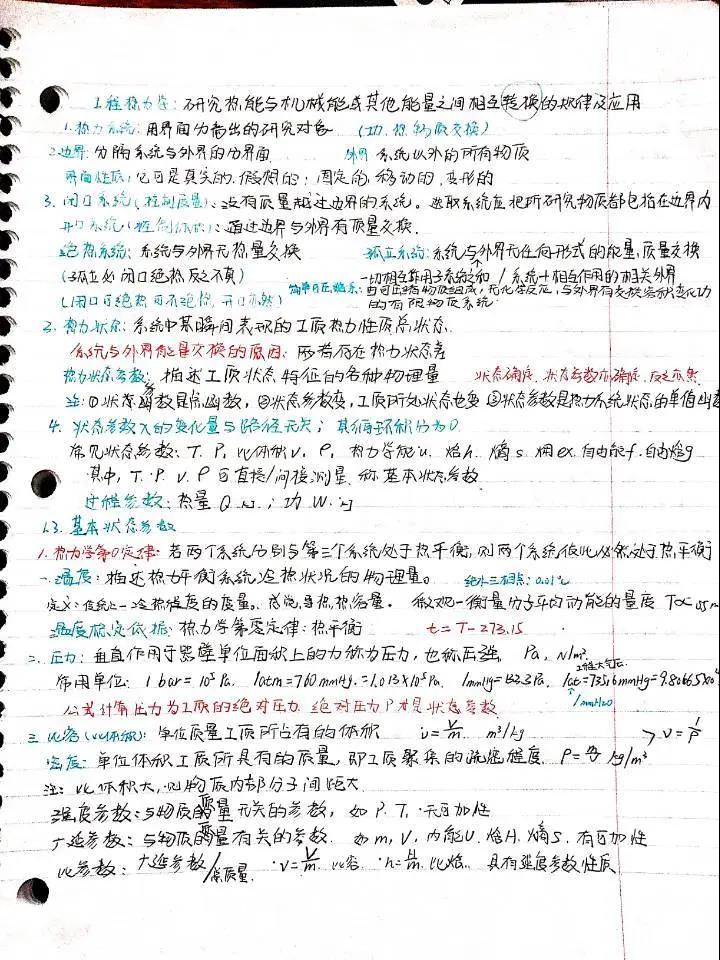 工程热力学：研究热能与机械能或其他能量之间相互转换的规律及应用
1.热力系统：用界面分离出的研究对象 (功.热.物质交换)
2.边界：分隔系统与外界的分界面 外界 系统以外的所有物质
界面性质：它可是真实的.假想的；固定的.移动的.变形的
3.闭口系统(控制质量)：没有质量越过边界的系统。选取系统应把所研究物质都包括在边界内
开口系统(控制体积)：通过边界与外界有质量交换.
绝热系统：系统与外界无热量交换 孤立系统：系统与外界无任何形式的能量,质量交换
(孤立必闭口绝热 反之不真) 一切相互作用子系统之和 / 系统+相互作用的相关外界
(闭口可绝热可不绝热,开口亦然) 简单可压缩系：由可压缩物质组成,无化学反应,与外界有交换容积变化功
的有限物质系统
3.热力状态：系统中某瞬间表现的工质热力性质总状态
系统与外界能量交换的原因：两者存在热力状态差
热力状态参数：描述工质状态特征的各种物理量 状态确定,状态参数亦确定,反之亦然
注：①状态函数是点函数，②状态参数变，工质所处状态也变 ③状态参数是热力系统状态的单值函数
4.状态参数x的变化量与路径无关；其循环积分为0.
常见状态参数：T.P,比体积v,ρ,热力学能u.焓h.熵s.㶲ex.自由能f.自由焓g
其中,T.P.v.ρ可直接/间接测量.称基本状态参数
过程参数：热量Q.kJ；功W.kJ
1.3.基本状态参数
1.热力学第0定律：若两个系统分别与第三个系统处于热平衡,则两个系统彼此必然处于热平衡
一.温度：描述热力平衡系统冷热状况的物理量。 纯水三相点：0.01℃
微观—衡量分子平均动能的量度
温度标定依据：热力学第零定律：热平衡 t=T-273.15
二.压力：垂直作用于器壁单位面积上的力称为压力,也称压强. Pa, N/m²
常用单位：1bar=10⁵Pa. 1atm=760mmHg=1.013×10⁵Pa. 1mmHg=133.3Pa. 工程大气压 1at=735.6mmHg=9.80665×10⁴
公式计算压力为工质的绝对压力.绝对压力P才是状态参数 1mmH₂O
三.比容(比体积)：单位质量工质所占有的体积 v=V/m m³/kg → v=1/ρ
密度：单位体积工质所具有的质量,即工质聚集的疏密程度 ρ=m/V kg/m³
注：比体积大,则物质内部分子间距大
强度参数：与物质的质量无关的参数,如P.T,不可加性
广延参数：与物质的质量有关的参数.如m,V,内能U.焓H.熵S.有可加性
比参数：广延参数/总质量. ·v=V/m.比容 ·h=H/m.比焓. 具有强度参数性质